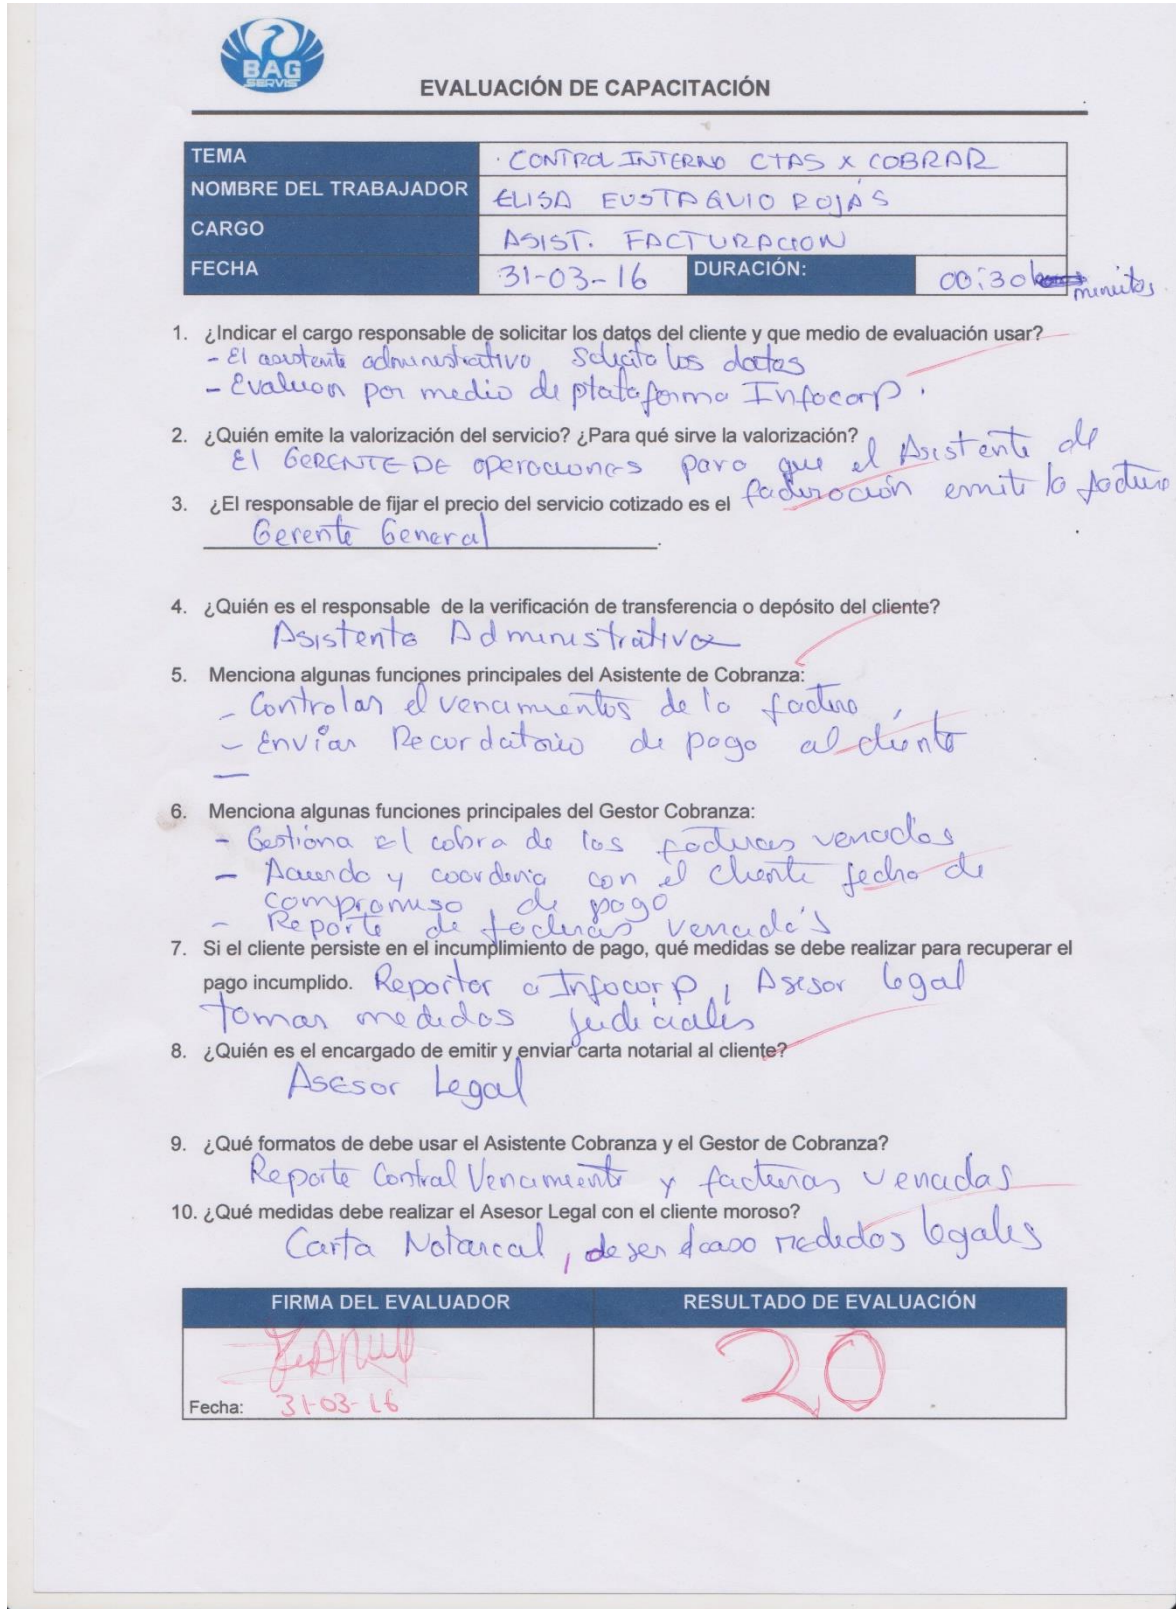 BAG
SERVIS
EVALUACIÓN DE CAPACITACIÓN
TEMA · CONTROL INTERNO CTAS X COBRAR
NOMBRE DEL TRABAJADOR ELISA EUSTAQUIO ROJAS
CARGO ASIST. FACTURACION
FECHA 31-03-16 DURACIÓN: 00:30 minutos
1. ¿Indicar el cargo responsable de solicitar los datos del cliente y que medio de evaluación usar?
- El asistente administrativo Solicita los datos
- Evaluan por medio de plataforma Infocorp.
2. ¿Quién emite la valorización del servicio? ¿Para qué sirve la valorización?
El GERENTE DE operaciones para que el Asistente de
facturación emite la factura
3. ¿El responsable de fijar el precio del servicio cotizado es el
Gerente General.
4. ¿Quién es el responsable de la verificación de transferencia o depósito del cliente?
Asistente Administrativa
5. Menciona algunas funciones principales del Asistente de Cobranza:
- Controlar el vencimientos de la factura,
- Enviar Recordatorio de pago al cliente
-
6. Menciona algunas funciones principales del Gestor Cobranza:
- Gestiona el cobra de las facturas vencidas
- Acuerdo y coordina con el cliente fecha de
compromiso de pago
- Reporte de facturas vencidas
7. Si el cliente persiste en el incumplimiento de pago, qué medidas se debe realizar para recuperar el
pago incumplido. Reportar a Infocorp, Asesor legal
tomar medidas judiciales
8. ¿Quién es el encargado de emitir y enviar carta notarial al cliente?
Asesor Legal
9. ¿Qué formatos de debe usar el Asistente Cobranza y el Gestor de Cobranza?
Reporte Control Vencimiento y facturas vencidas
10. ¿Qué medidas debe realizar el Asesor Legal con el cliente moroso?
Carta Notarial, de ser el caso medidas legales
FIRMA DEL EVALUADOR RESULTADO DE EVALUACIÓN
20
Fecha: 31-03-16